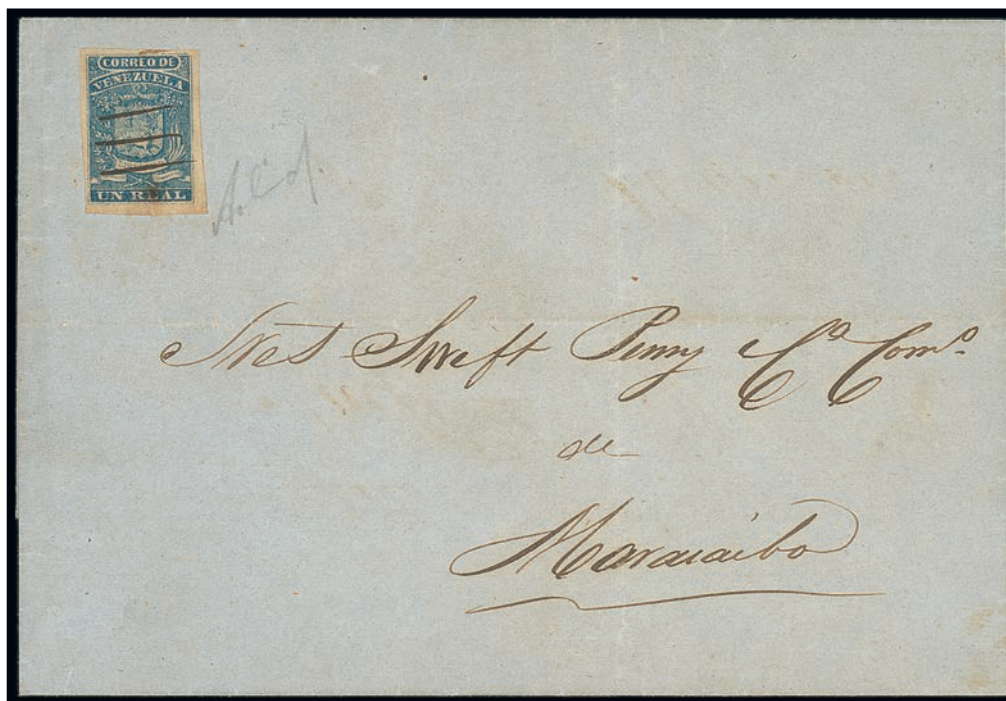 CORREO DE
VENEZUELA
UN REAL
Sres Swift Penny Ca Como
de
Maracaibo